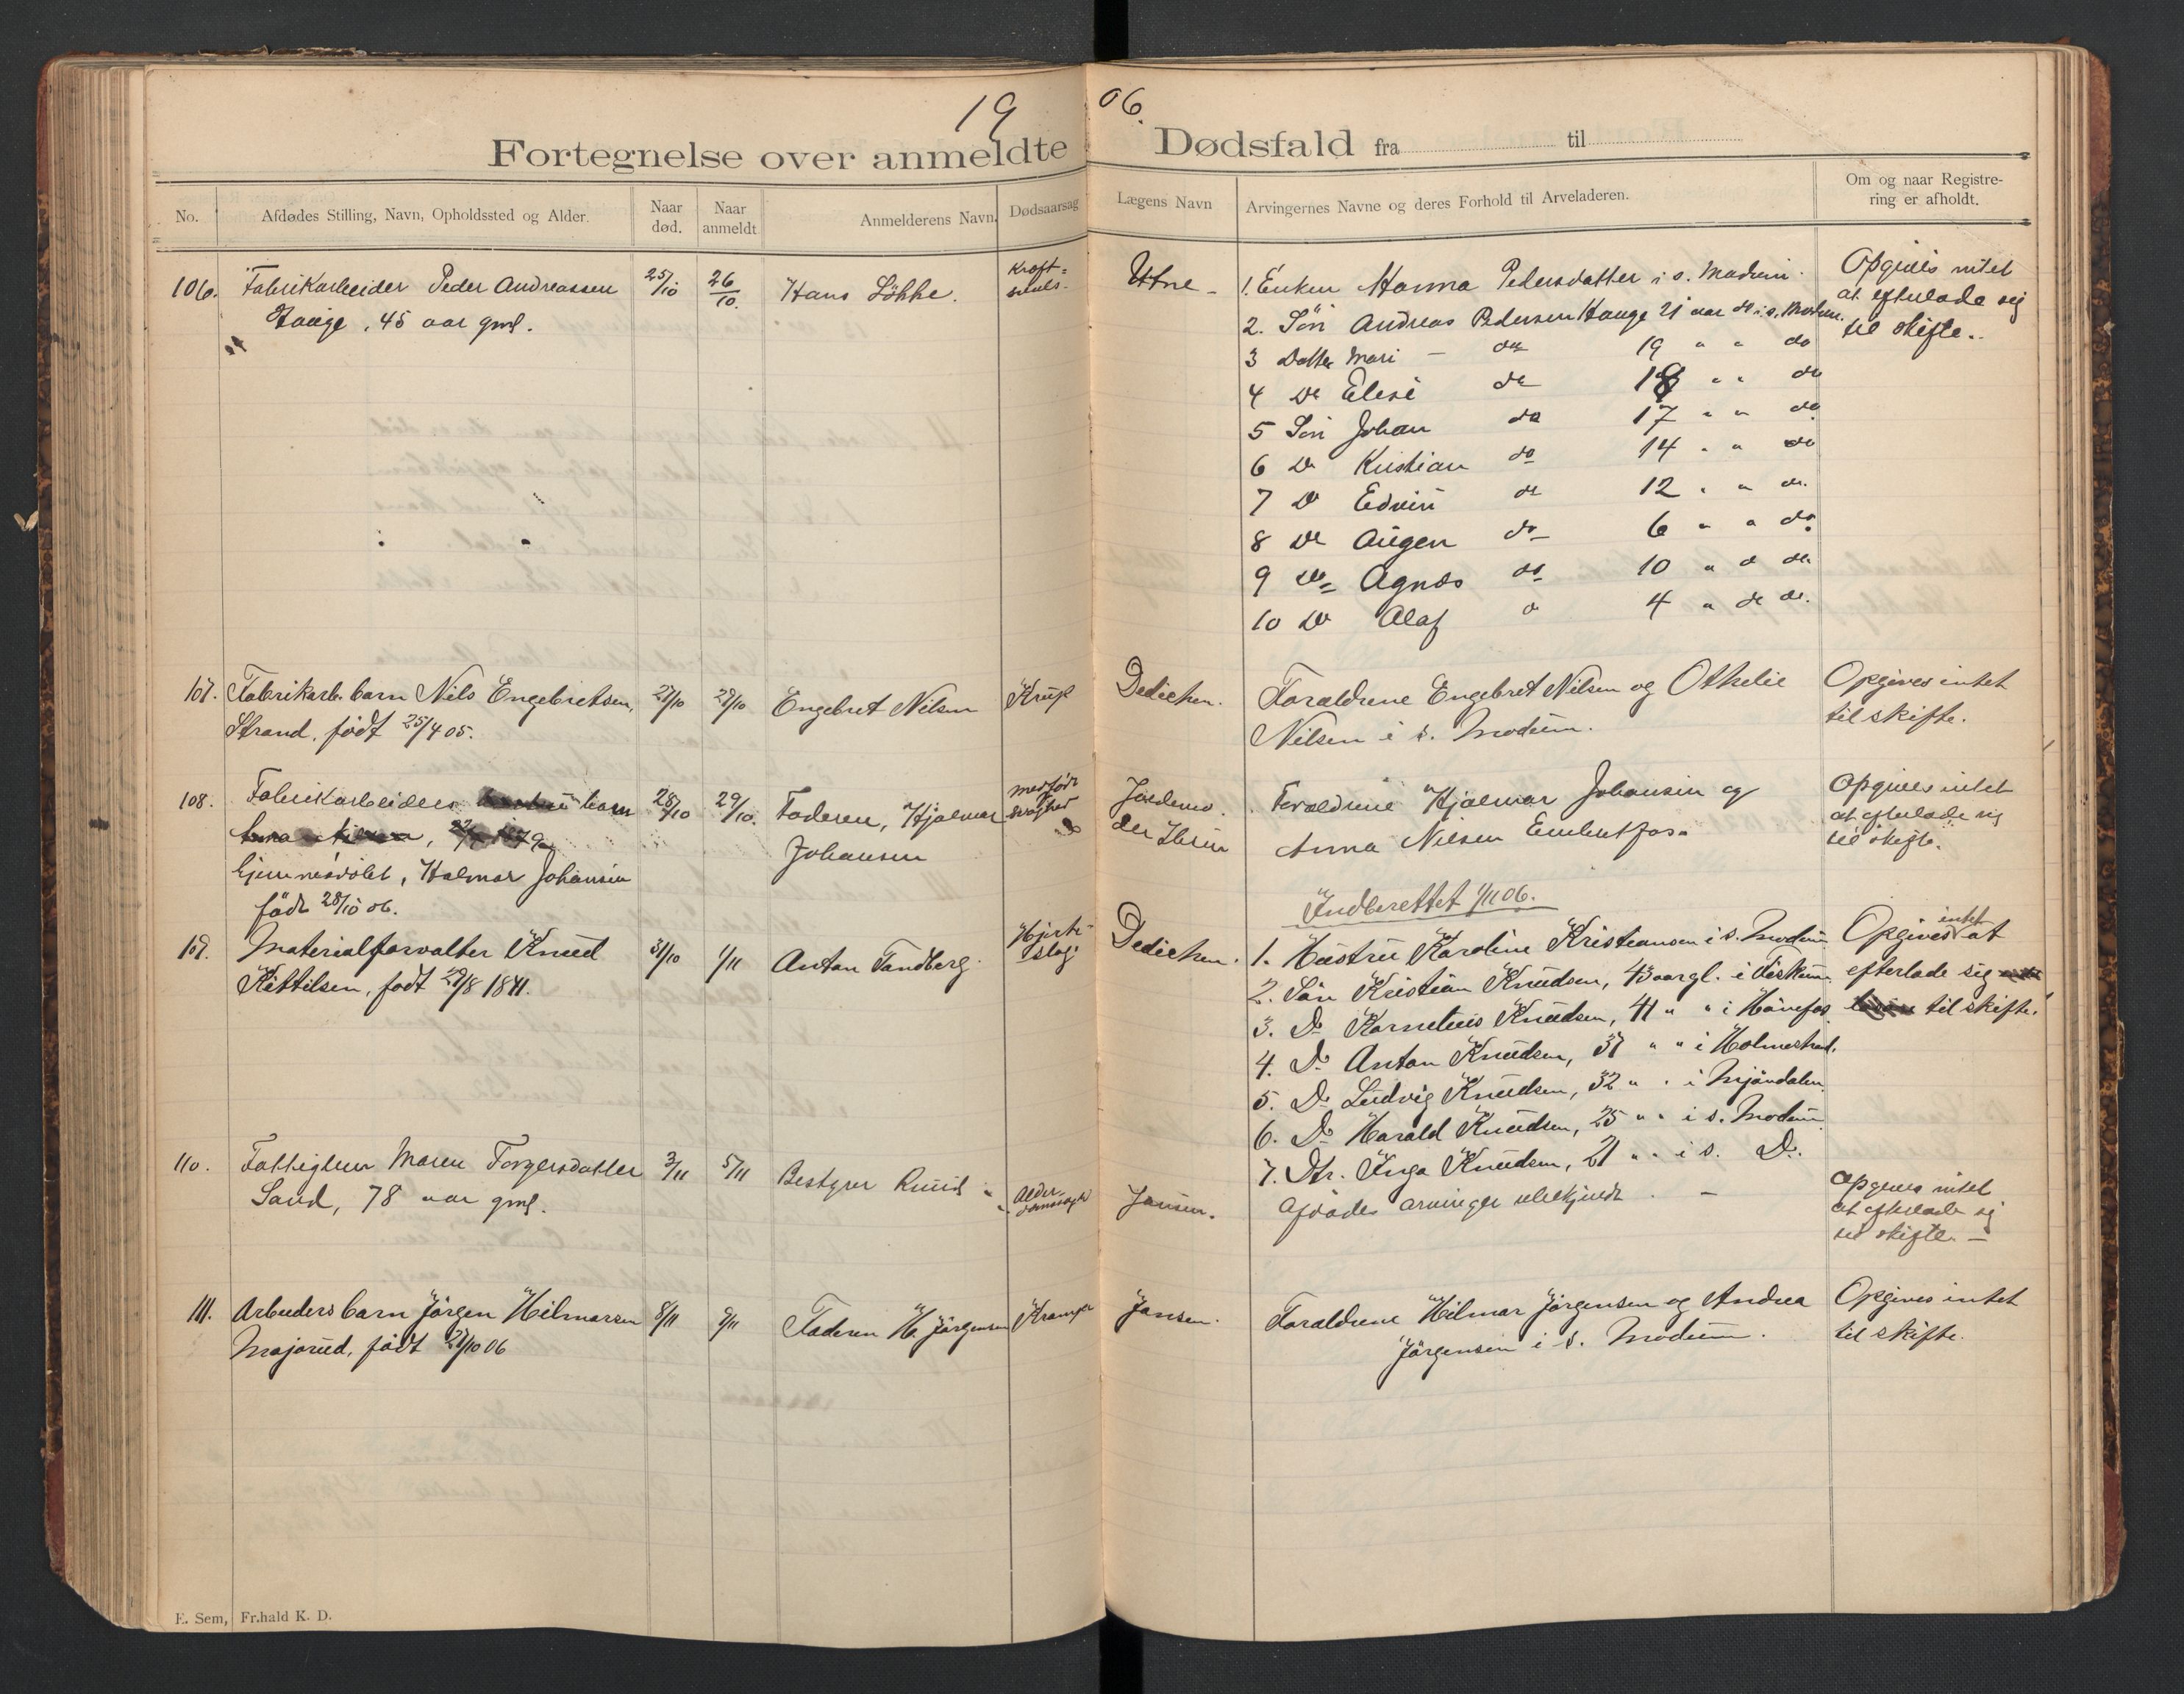 1906.
Fortegnelse over anmeldte Dødsfald fra til
No. Afdødes Stilling, Navn, Opholdssted og Alder. Naar død. Naar anmeldt Anmelderens Navn. Dødsaarsag Lægens Navn Arvingernes Navne og deres Forhold til Arveladeren. Om og naar Registrering er afholdt.
106. Fabrikarbeider Peder Andreassen 25/10 26/10. Hans Lökke. Kræft=
Hauge, 45 aar gml.
Utne - 1. Enken Hanna Pedersdatter i s. Modum. Opgives intet
2. Sön Andreas Pedersen Hauge 21 aar do i s. Modum. at efterlade sig
3 Datter Mari - do 19 " " do til skifte.
4 Do Elise do 18 " " do
5 Sön Johan do 17 " " do
6 Do Kristian do 14 " " do
7 Do Edvin do 12 " " do
8 Do Augen do 6 " " do
9 Do Agnes do 10 " " do
10 Do Olaf do 4 " do do.
107. Fabrikarb. barn Nils Engebretsen, 27/10 29/10 Engebret Nilsen Krup Dedichen. Foraldrene Engebret Nilsen og Othelie Opgives intet
Strand, født 25/4 05. Nilsen i s. Modum. til skifte.
108. Fabrikarbeiders barn 28/10 29/10. Faderen, Hjalmar medfødt svaghed Jordemoder Foraldrene Hjalmar Johansen og Opgives intet
Johansen Anna Nilsen Embretfos. at efterlade sig
hjemmedøbt, Halmar Johansen til skifte.
født 28/10 06.
Indberettet 1/11 06.
109. Materialforvalter Knud 31/10 1/11 Anton Tandberg. Hjerteslag Dedichen. 1. Hustru Karoline Kristiansen i s. Modum. Opgives intet at
Kittilsen, født 29/8 1841. 2. Sön Kristian Knudsen, 43 aar gl. i Eiskum. efterlade sig
3. Do Kornelius Knudsen, 41 " " i Hönefos. til skifte.
4. Do Anton Knudsen, 37 " " i Holmestrand.
5. Do Ludvig Knudsen, 32 " " i Mjöndalen.
6. Do Harald Knudsen, 25 " " i s. Modum.
7. Dtr. Inga Knudsen, 21 " " i s. Do.
110. Fattiglem Maren Torgersdatter 3/11 5/11 Bestyrer Ruud Alderdomssvaghed Jansen. Afdødes arvinger ubekjendt. - Opgives intet
Sand, 78 aar gml. at efterlade sig
til skifte. -
111. Arbeiders barn Jörgen Hilmarsen 8/11 9/11 Faderen H. Jörgensen Krampe Jansen. Foraldrene Hilmar Jörgensen og Andrea Opgives intet
Majorud, født 21/10 06 Jörgensen i s. Modum. til skifte.
E. Sem, Fr.hald K. D.